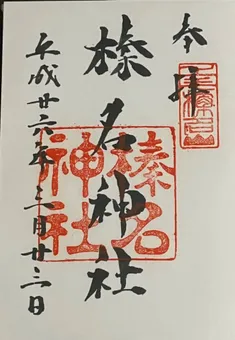 奉拝
榛名神社
平成廿六年三月廿三日
榛名
神社